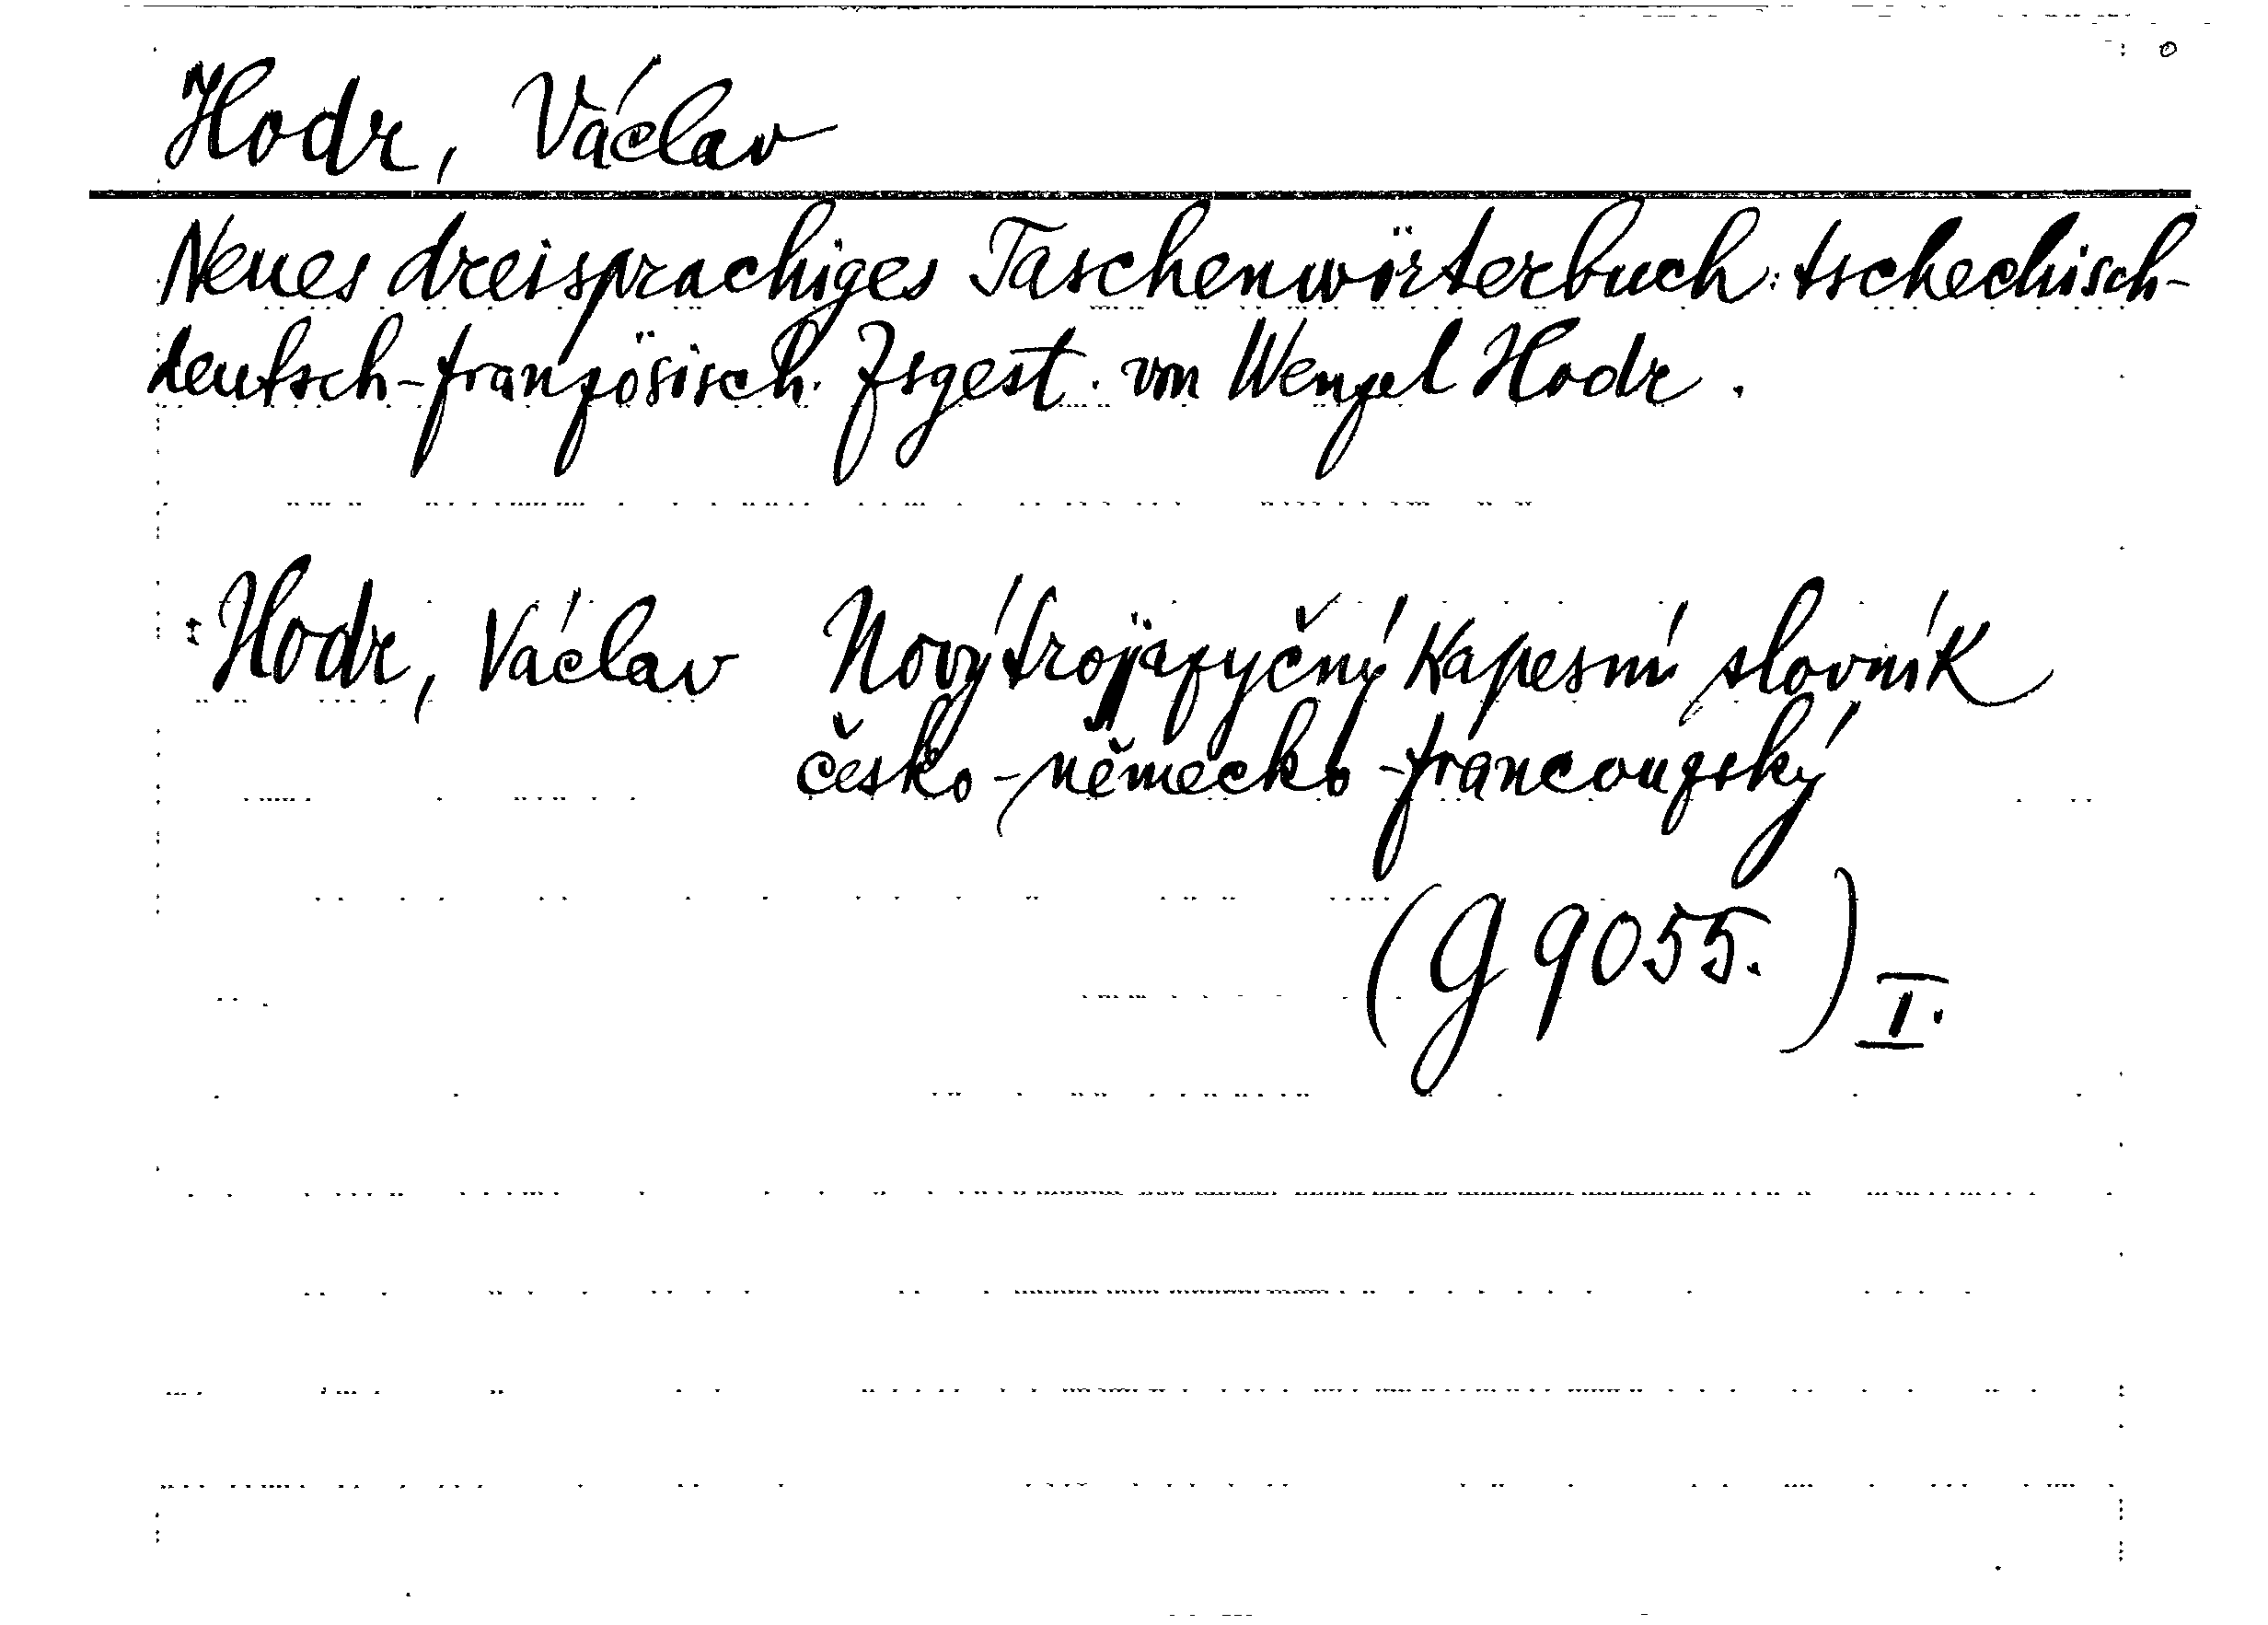 Hodr, Václav
Neues dreisprachiges Taschenwörterbuch: tschechisch-
deutsch-französisch. Zsgest. von Wenzel Hodr.
: Hodr, Václav Nový trojjazyčný kapesní slovník
česko-německo-francouzský
(G 9055.) I.